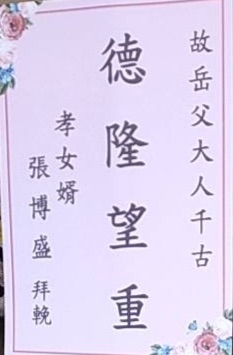 故岳父大人千古
德隆望重
孝女婿
張博盛拜輓